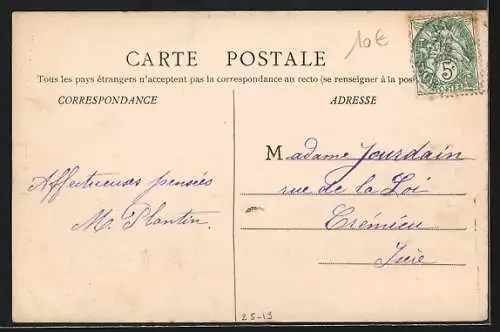 10€
CARTE POSTALE
Tous les pays étrangers n'acceptent pas la correspondance au recto (se renseigner à la pos
CORRESPONDANCE
ADRESSE
Affectueuses pensées
M. Plantin.
Madame Jourdain
rue de la Loi
Crémieu
Isère
5c
POSTES
25-19